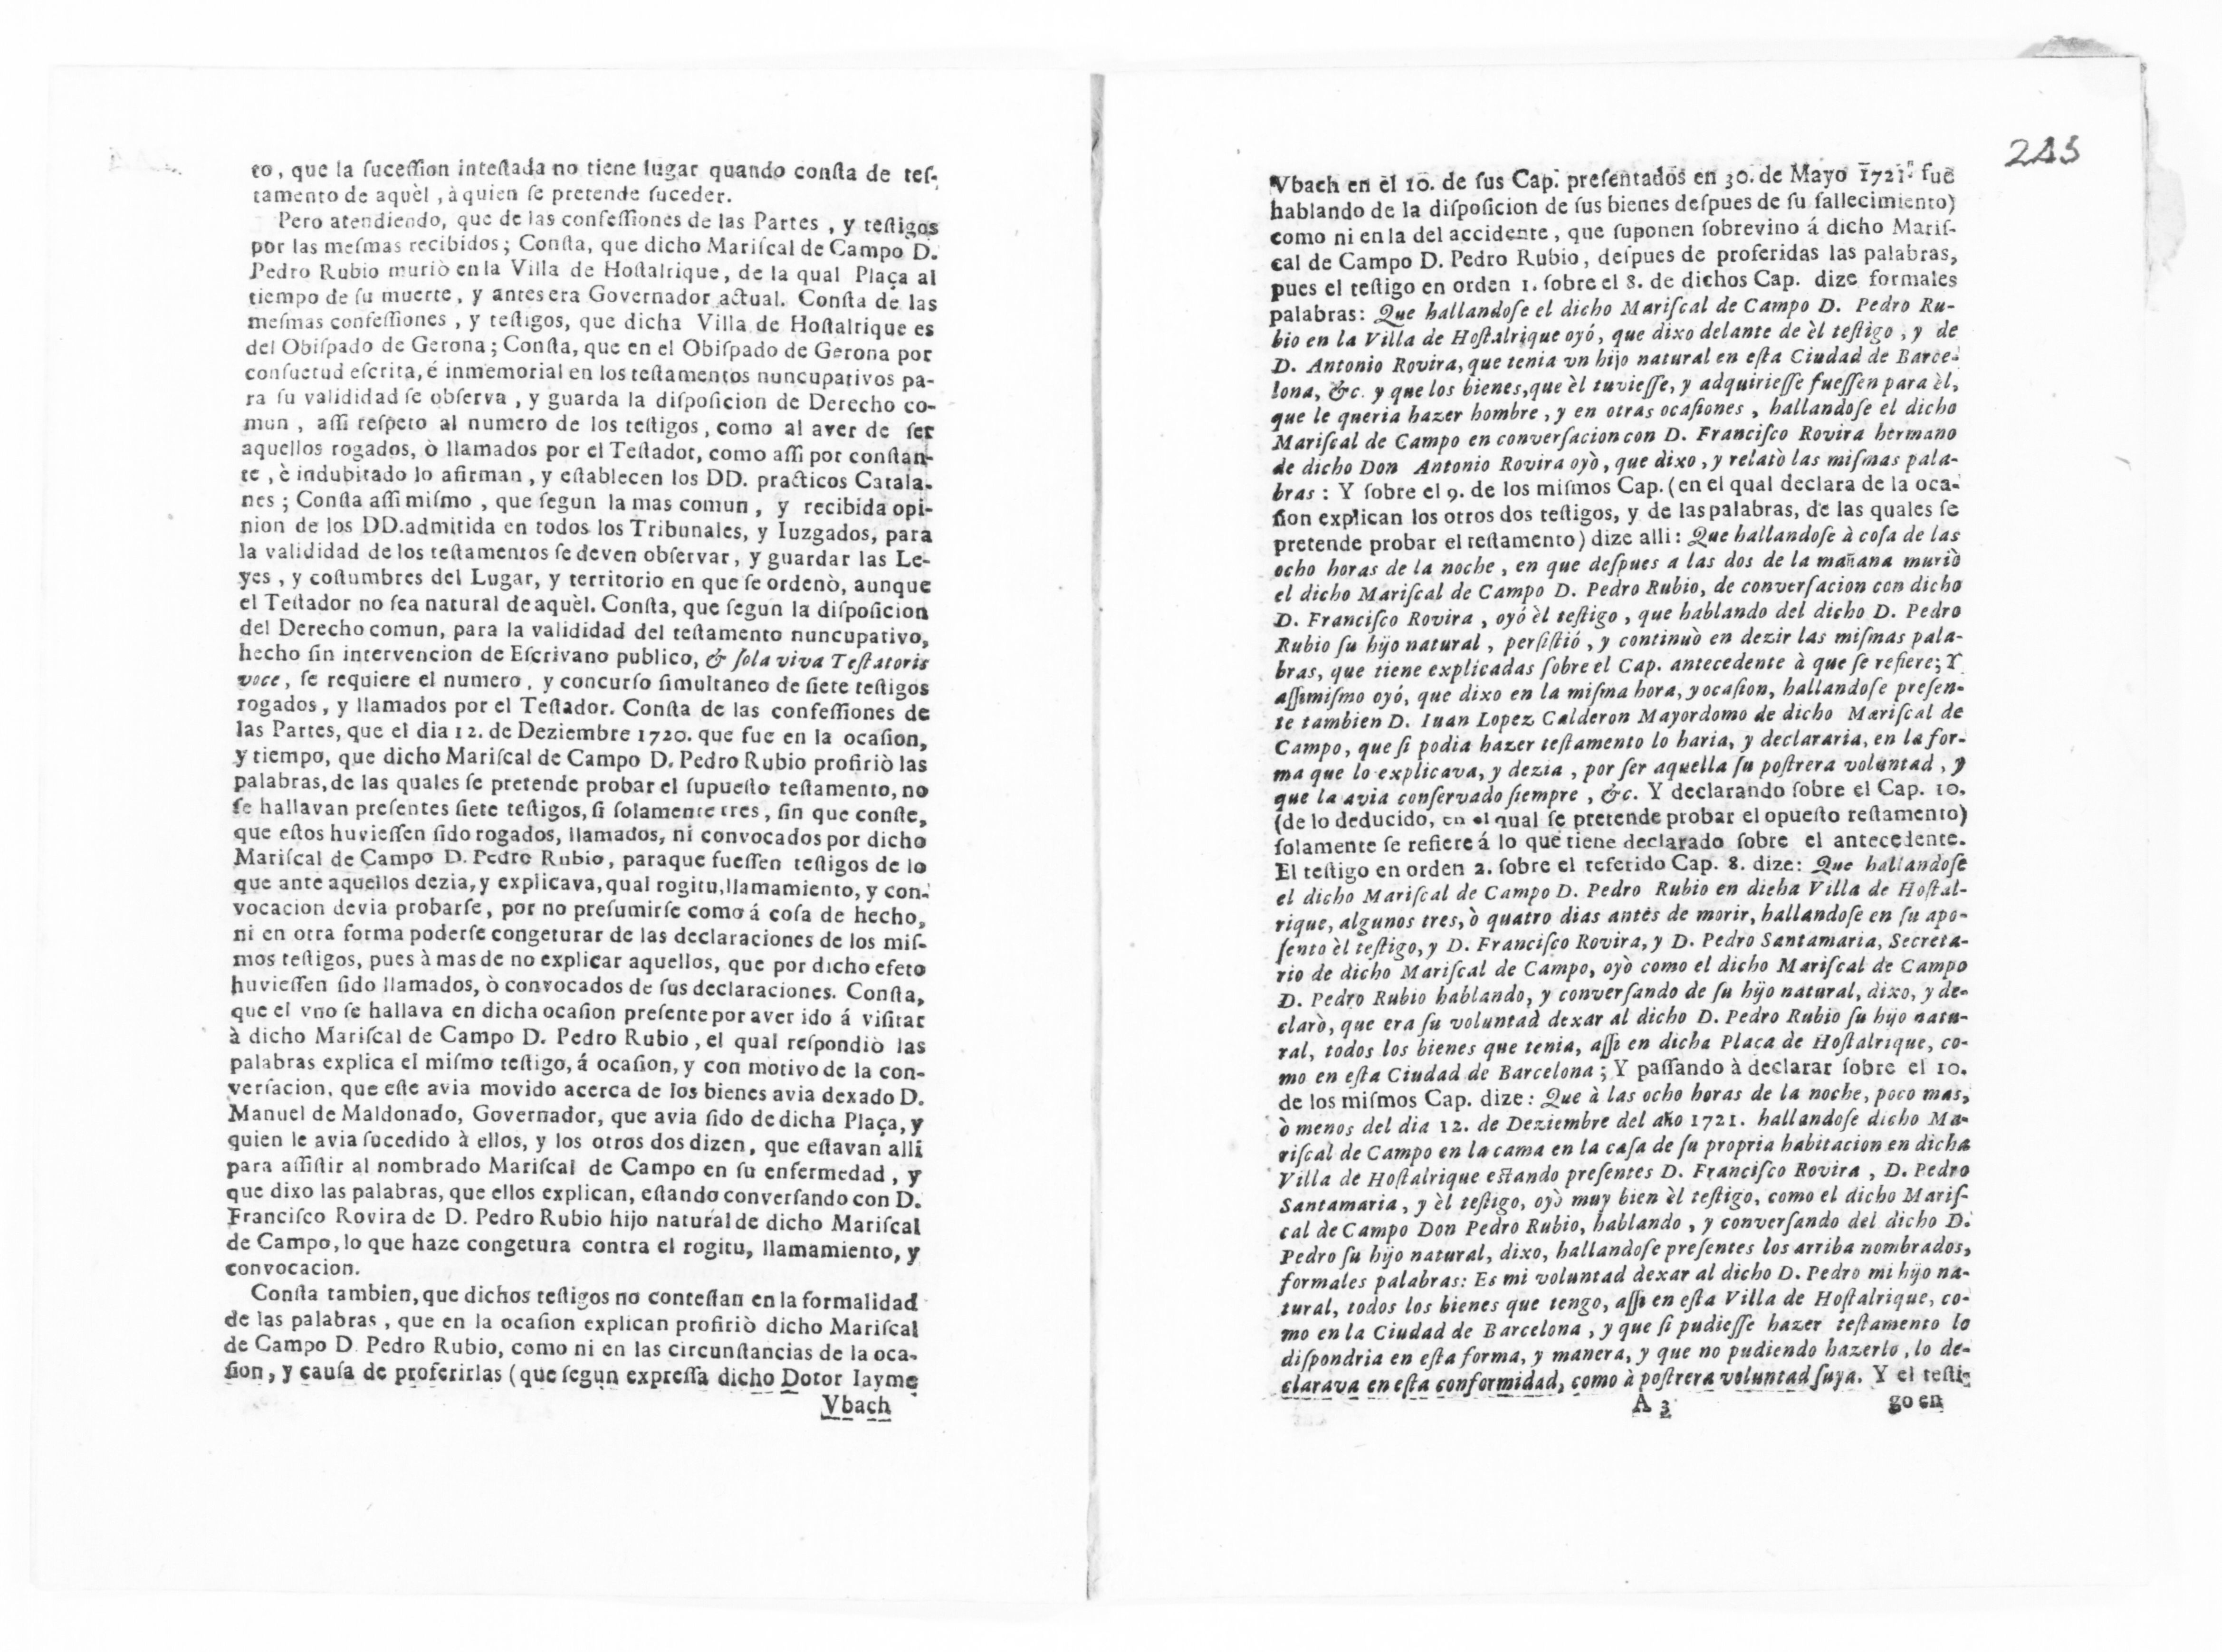 to, que la ſuceſſion inteſtada no tiene lugar quando conſta de teſ-
tamento de aquèl, à quien ſe pretende ſuceder.
Pero atendiendo, que de las confeſſiones de las Partes, y teſtigos
por las meſmas recibidos; Conſta, que dicho Mariſcal de Campo D.
Pedro Rubio muriò en la Villa de Hoſtalrique, de la qual Plaça al
tiempo de ſu muerte, y antes era Governador actual. Conſta de las
meſmas confeſſiones, y teſtigos, que dicha Villa de Hoſtalrique es
del Obiſpado de Gerona; Conſta, que en el Obiſpado de Gerona por
conſuetud eſcrita, é inmemorial en los teſtamentos nuncupativos pa-
ra ſu valididad ſe obſerva, y guarda la diſpoſicion de Derecho co-
mun, aſſi reſpeto al numero de los teſtigos, como al aver de ſer
aquellos rogados, ò llamados por el Teſtador, como aſſi por conſtan-
te, è indubitado lo afirman, y eſtablecen los DD. practicos Catala-
nes; Conſta aſſi miſmo, que ſegun la mas comun, y recibida opi-
nion de los DD. admitida en todos los Tribunales, y Iuzgados, para
la valididad de los teſtamentos ſe deven obſervar, y guardar las Le-
yes, y coſtumbres del Lugar, y territorio en que ſe ordenò, aunque
el Teſtador no ſea natural de aquèl. Conſta, que ſegun la diſpoſicion
del Derecho comun, para la valididad del teſtamento nuncupativo,
hecho ſin intervencion de Eſcrivano publico, & ſola viva Teſtatoris
voce, ſe requiere el numero, y concurſo ſimultaneo de ſiete teſtigos
rogados, y llamados por el Teſtador. Conſta de las confeſſiones de
las Partes, que el dia 12. de Deziembre 1720. que fue en la ocaſion,
y tiempo, que dicho Mariſcal de Campo D. Pedro Rubio profiriò las
palabras, de las quales ſe pretende probar el ſupueſto teſtamento, no
ſe hallavan preſentes ſiete teſtigos, ſi ſolamente tres, ſin que conſte,
que eſtos huvieſſen ſido rogados, llamados, ni convocados por dicho
Mariſcal de Campo D. Pedro Rubio, paraque fueſſen teſtigos de lo
que ante aquellos dezia, y explicava, qual rogitu, llamamiento, y con-
vocacion devia probarſe, por no preſumirſe como á coſa de hecho,
ni en otra forma poderſe congeturar de las declaraciones de los miſ-
mos teſtigos, pues à mas de no explicar aquellos, que por dicho efeto
huvieſſen ſido llamados, ò convocados de ſus declaraciones. Conſta,
que el vno ſe hallava en dicha ocaſion preſente por aver ido á viſitar
à dicho Mariſcal de Campo D. Pedro Rubio, el qual reſpondiò las
palabras explica el miſmo teſtigo, á ocaſion, y con motivo de la con-
verſacion, que eſte avia movido acerca de los bienes avia dexado D.
Manuel de Maldonado, Governador, que avia ſido de dicha Plaça, y
quien le avia ſucedido à ellos, y los otros dos dizen, que eſtavan alli
para aſſiſtir al nombrado Mariſcal de Campo en ſu enfermedad, y
que dixo las palabras, que ellos explican, eſtando converſando con D.
Franciſco Rovira de D. Pedro Rubio hijo natural de dicho Mariſcal
de Campo, lo que haze congetura contra el rogitu, llamamiento, y
convocacion.
Conſta tambien, que dichos teſtigos no conteſtan en la formalidad
de las palabras, que en la ocaſion explican profiriò dicho Mariſcal
de Campo D. Pedro Rubio, como ni en las circunſtancias de la oca-
ſion, y cauſa de proferirlas (que ſegun expreſſa dicho Dotor Iayme
Vbach
243
Vbach en el 10. de ſus Cap. preſentados en 30. de Mayo 1721. fue
hablando de la diſpoſicion de ſus bienes deſpues de ſu fallecimiento)
como ni en la del accidente, que ſuponen ſobrevino á dicho Mariſ-
cal de Campo D. Pedro Rubio, deſpues de proferidas las palabras,
pues el teſtigo en orden 1. ſobre el 8. de dichos Cap. dize formales
palabras: Que hallandoſe el dicho Mariſcal de Campo D. Pedro Ru-
bio en la Villa de Hoſtalrique oyó, que dixo delante de èl teſtigo, y de
D. Antonio Rovira, que tenia vn hijo natural en eſta Ciudad de Barce-
lona, &c. y que los bienes, que èl tuvieſſe, y adquirieſſe fueſſen para èl,
que le queria hazer hombre, y en otras ocaſiones, hallandoſe el dicho
Mariſcal de Campo en converſacion con D. Franciſco Rovira hermano
de dicho Don Antonio Rovira oyò, que dixo, y relatò las miſmas pala-
bras: Y ſobre el 9. de los miſmos Cap. (en el qual declara de la oca-
ſion explican los otros dos teſtigos, y de las palabras, de las quales ſe
pretende probar el teſtamento) dize alli: Que hallandoſe à coſa de las
ocho horas de la noche, en que deſpues a las dos de la mañana muriò
el dicho Mariſcal de Campo D. Pedro Rubio, de converſacion con dicho
D. Franciſco Rovira, oyó èl teſtigo, que hablando del dicho D. Pedro
Rubio ſu hijo natural, perſiſtió, y continuò en dezir las miſmas pala-
bras, que tiene explicadas ſobre el Cap. antecedente à que ſe refiere; Y
aſſimiſmo oyó, que dixo en la miſma hora, y ocaſion, hallandoſe preſen-
te tambien D. Iuan Lopez Calderon Mayordomo de dicho Mariſcal de
Campo, que ſi podia hazer teſtamento lo haria, y declararia, en la for-
ma que lo explicava, y dezia, por ſer aquella ſu poſtrera voluntad, y
que la avia conſervado ſiempre, &c. Y declarando ſobre el Cap. 10.
(de lo deducido, en el qual ſe pretende probar el opueſto teſtamento)
ſolamente ſe refiere á lo que tiene declarado ſobre el antecedente.
El teſtigo en orden 2. ſobre el referido Cap. 8. dize: Que hallandoſe
el dicho Mariſcal de Campo D. Pedro Rubio en dicha Villa de Hoſtal-
rique, algunos tres, ò quatro dias antes de morir, hallandoſe en ſu apo-
ſento èl teſtigo, y D. Franciſco Rovira, y D. Pedro Santamaria, Secreta-
rio de dicho Mariſcal de Campo, oyò como el dicho Mariſcal de Campo
D. Pedro Rubio hablando, y converſando de ſu hijo natural, dixo, y de-
clarò, que era ſu voluntad dexar al dicho D. Pedro Rubio ſu hijo natu-
ral, todos los bienes que tenia, aſſi en dicha Placa de Hoſtalrique, co-
mo en eſta Ciudad de Barcelona; Y paſſando à declarar ſobre el 10.
de los miſmos Cap. dize: Que à las ocho horas de la noche, poco mas,
ò menos del dia 12. de Deziembre del año 1721. hallandoſe dicho Ma-
riſcal de Campo en la cama en la caſa de ſu propria habitacion en dicha
Villa de Hoſtalrique eſtando preſentes D. Franciſco Rovira, D. Pedro
Santamaria, y èl teſtigo, oyò muy bien èl teſtigo, como el dicho Mariſ-
cal de Campo Don Pedro Rubio, hablando, y converſando del dicho D.
Pedro ſu hijo natural, dixo, hallandoſe preſentes los arriba nombrados,
formales palabras: Es mi voluntad dexar al dicho D. Pedro mi hijo na-
tural, todos los bienes que tengo, aſſi en eſta Villa de Hoſtalrique, co-
mo en la Ciudad de Barcelona, y que ſi pudieſſe hazer teſtamento lo
diſpondria en eſta forma, y manera, y que no pudiendo hazerlo, lo de-
clarava en eſta conformidad, como à poſtrera voluntad ſuya. Y el teſti-
A 3 go en